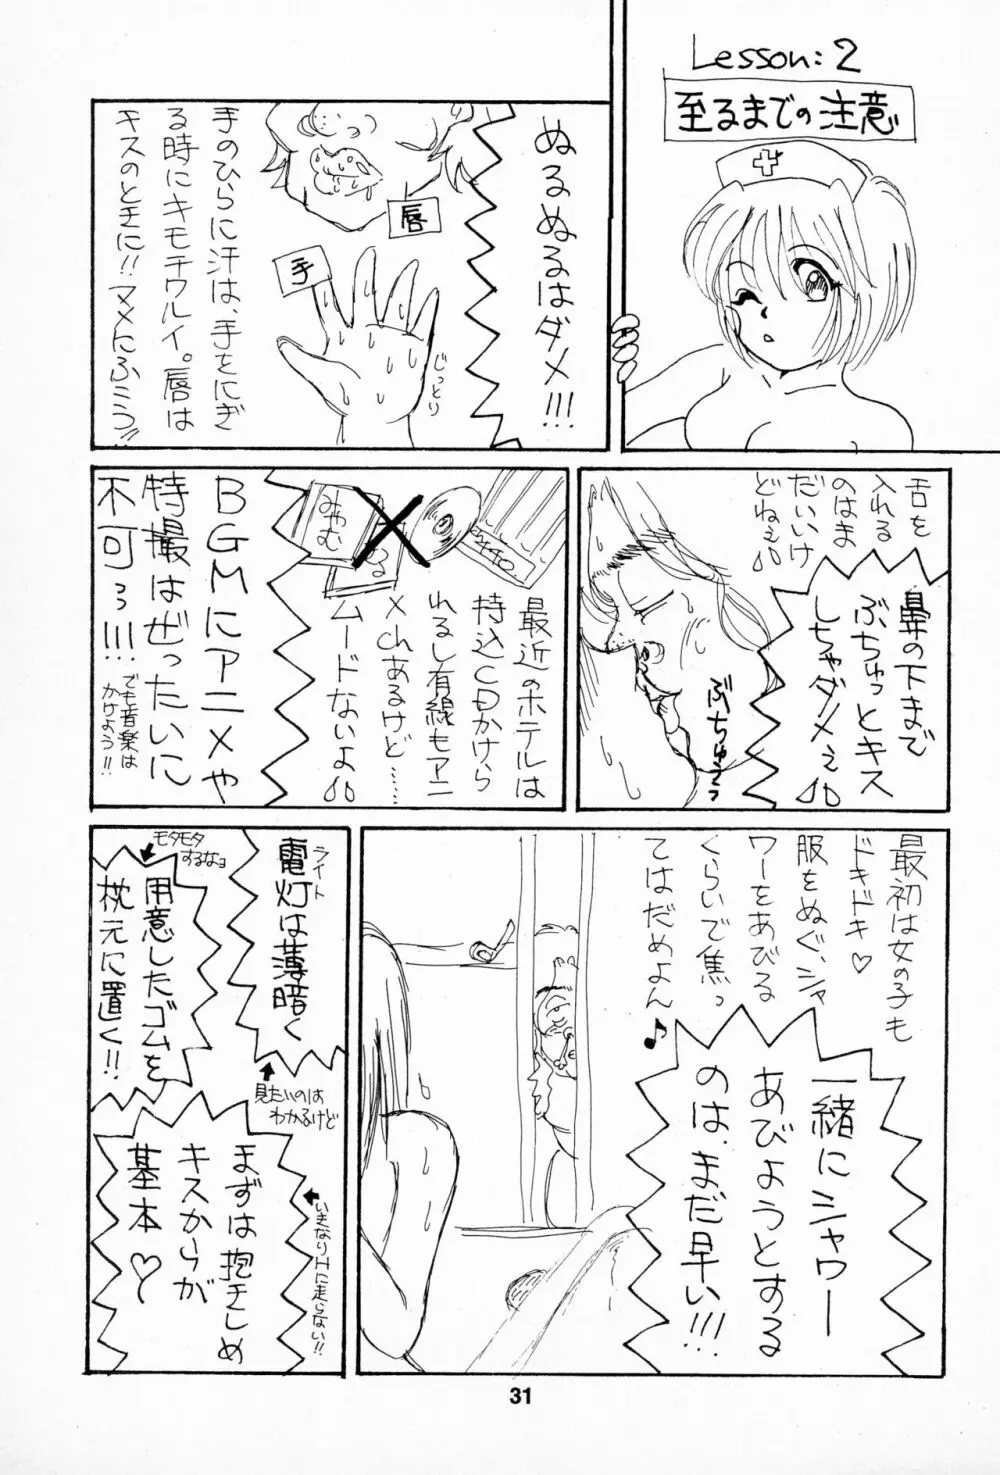 Lesson:2
至るまでの注意
ぬるぬるはダメ!!!
唇
手
じっとり
手のひらに汗は、手をにぎ
る時にキモチワルイ。唇は
キスのときに!!マメにふこう!!
舌を
入れる
のはま
だいいけ
どねぇ
鼻の下まで
ぶちゅっとキス
しちゃダメぇ
ぶちゅうっ
最近のホテルは
持込CDかけら
れるし有線もアニ
メchあるけど……
ムードないよ
440
BGMにアニメや
特撮はぜったいに
不可っ!!!
でも音楽は
かけよう!!
最初は女の子も
ドキドキ♡
服をぬぐ、シャ
ワーをあびる
くらいで焦っ
てはだめよん♪
一緒にシャワー
あびようとする
のは、まだ早い!!!
ライト
電灯は薄暗く
見たいのは
わかるけど
モタモタ
するなョ
用意したゴムを
枕元に置く!!
まずは抱きしめ
キスからが
基本♡
いきなりHに走らない!!
31